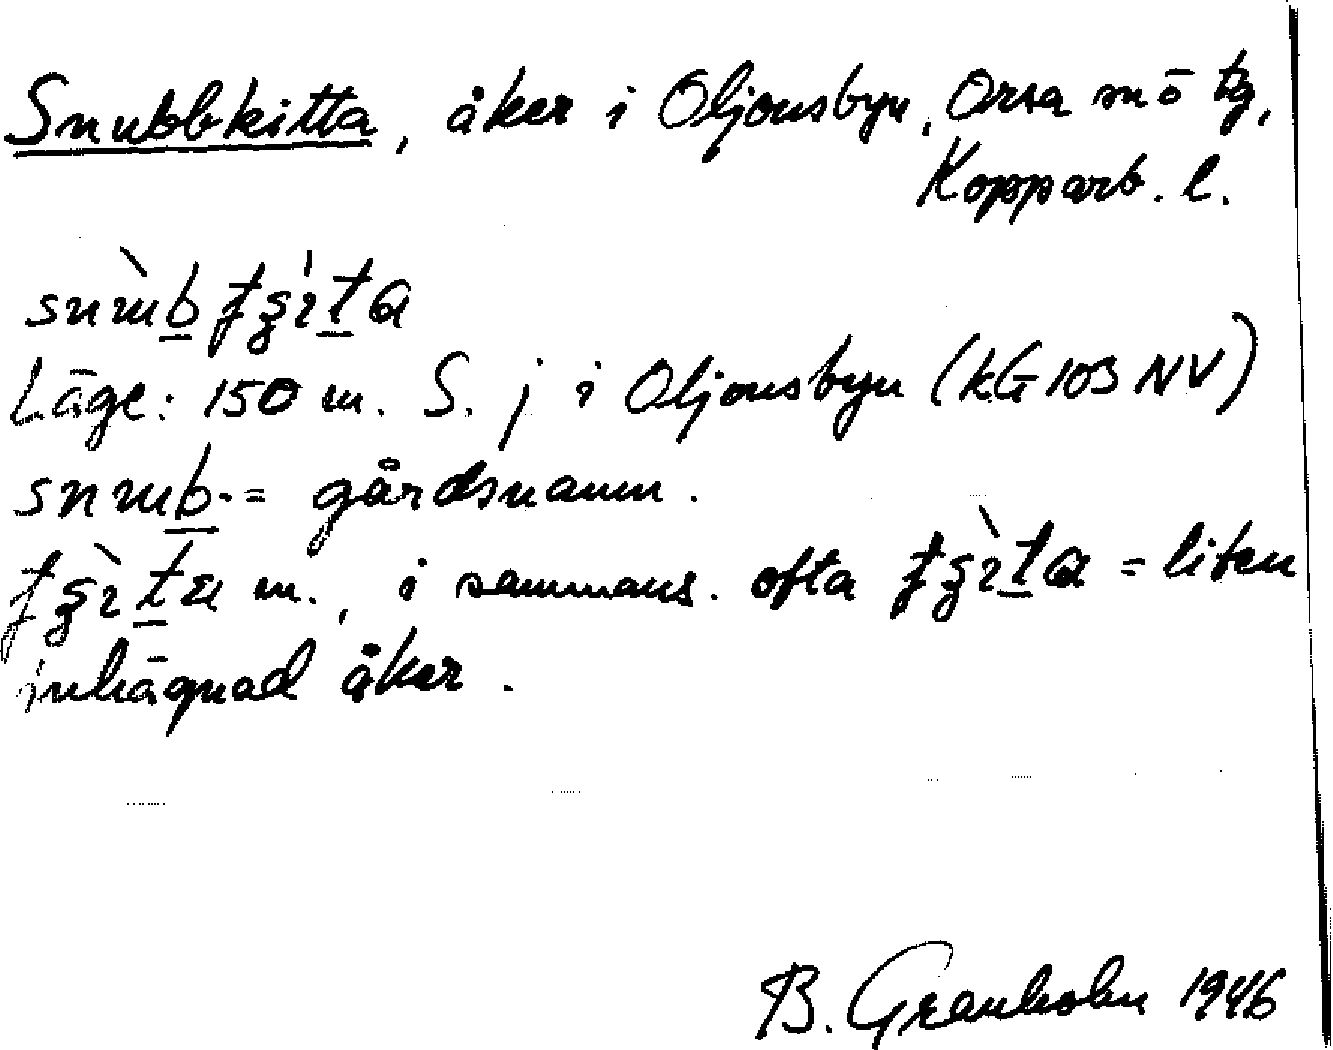 Snubbkitta, åker i Oljonsbyn, Orsa sn ō tg,
Kopparb. l.
Läge: 150 m. S. j i Oljonsbyn (kG 103 NV)
= gårdsnamn.
m., i sammans. ofta = liten
inhägnad åker.
B. Granholm 1946